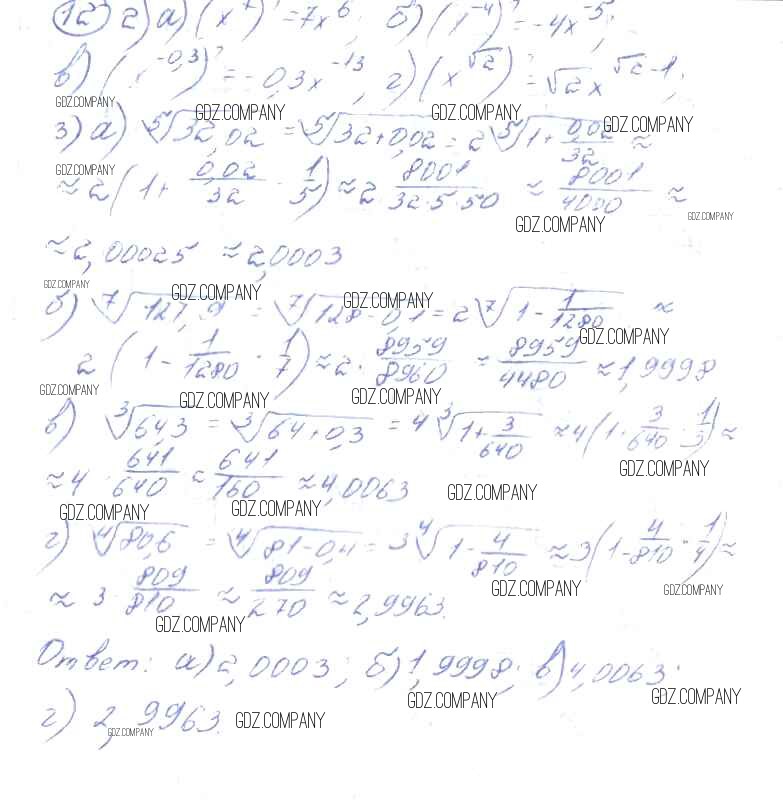 12 2) а) (x⁷)' = 7x⁶; б) (x⁻⁴)' = -4x⁻⁵;
в) (x^-0,3)' = -0,3x^-1,3; г) (x^√2)' = √2 x^√2-1;
GDZ.COMPANY GDZ.COMPANY GDZ.COMPANY
3) а) ⁵√32,02 = ⁵√32+0,02 = 2 ⁵√1+0,02/32 ≈
GDZ.COMPANY GDZ.COMPANY
≈ 2 (1+ 0,02/32 · 1/5) ≈ 2 · 8001/32·5·50 ≈ 8001/4000 ≈
GDZ.COMPANY GDZ.COMPANY
≈ 2,00025 ≈ 2,0003
GDZ.COMPANY GDZ.COMPANY GDZ.COMPANY
б) ⁷√127,9 = ⁷√128-0,1 = 2 ⁷√1 - 1/1280 ≈
GDZ.COMPANY
2 (1 - 1/1280 · 1/7) ≈ 2 · 8959/8960 = 8959/4480 ≈ 1,9998
GDZ.COMPANY GDZ.COMPANY GDZ.COMPANY
в) ³√64,3 = ³√64+0,3 = 4 ³√1+3/640 ≈ 4 (1· 3/640 · 1/3) ≈
GDZ.COMPANY
≈ 4 · 641/640 ≈ 641/160 ≈ 4,0063
GDZ.COMPANY GDZ.COMPANY GDZ.COMPANY
г) ⁴√80,6 = ⁴√81-0,4 = 3 ⁴√1 - 4/810 ≈ 3 (1- 4/810 · 1/4) ≈
GDZ.COMPANY GDZ.COMPANY
≈ 3 · 809/810 ≈ 809/270 ≈ 2,9963.
GDZ.COMPANY
Ответ: а) 2,0003; б) 1,9998; в) 4,0063;
GDZ.COMPANY GDZ.COMPANY
г) 2,9963.
GDZ.COMPANY GDZ.COMPANY